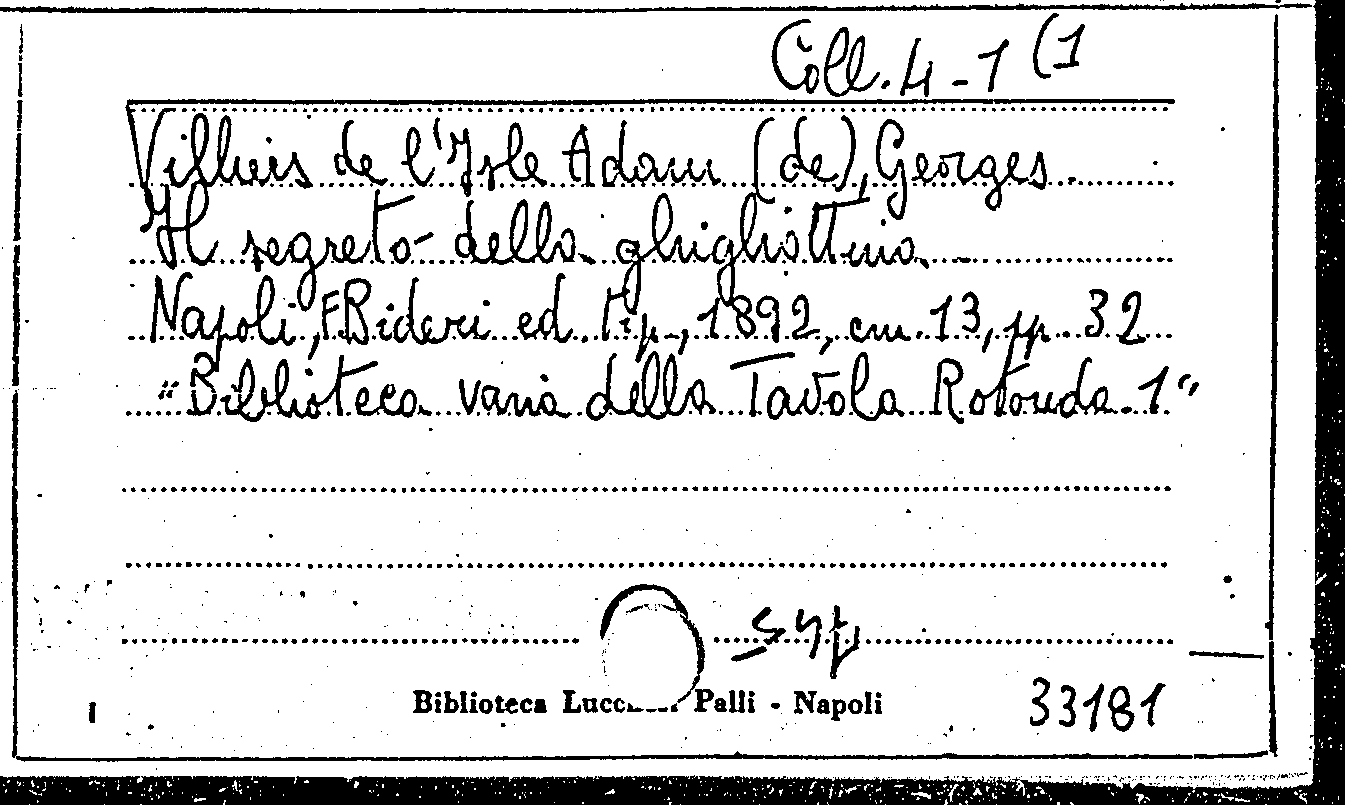 Coll. 4-1 (1
Villiers de l'Isle Adam (de), Georges.
Il segreto della ghigliottina.
Napoli, F. Bideri ed. tip., 1892, cm. 13, pp. 32
"Biblioteca varia della Tavola Rotonda. 1"
Biblioteca Palli - Napoli
33181